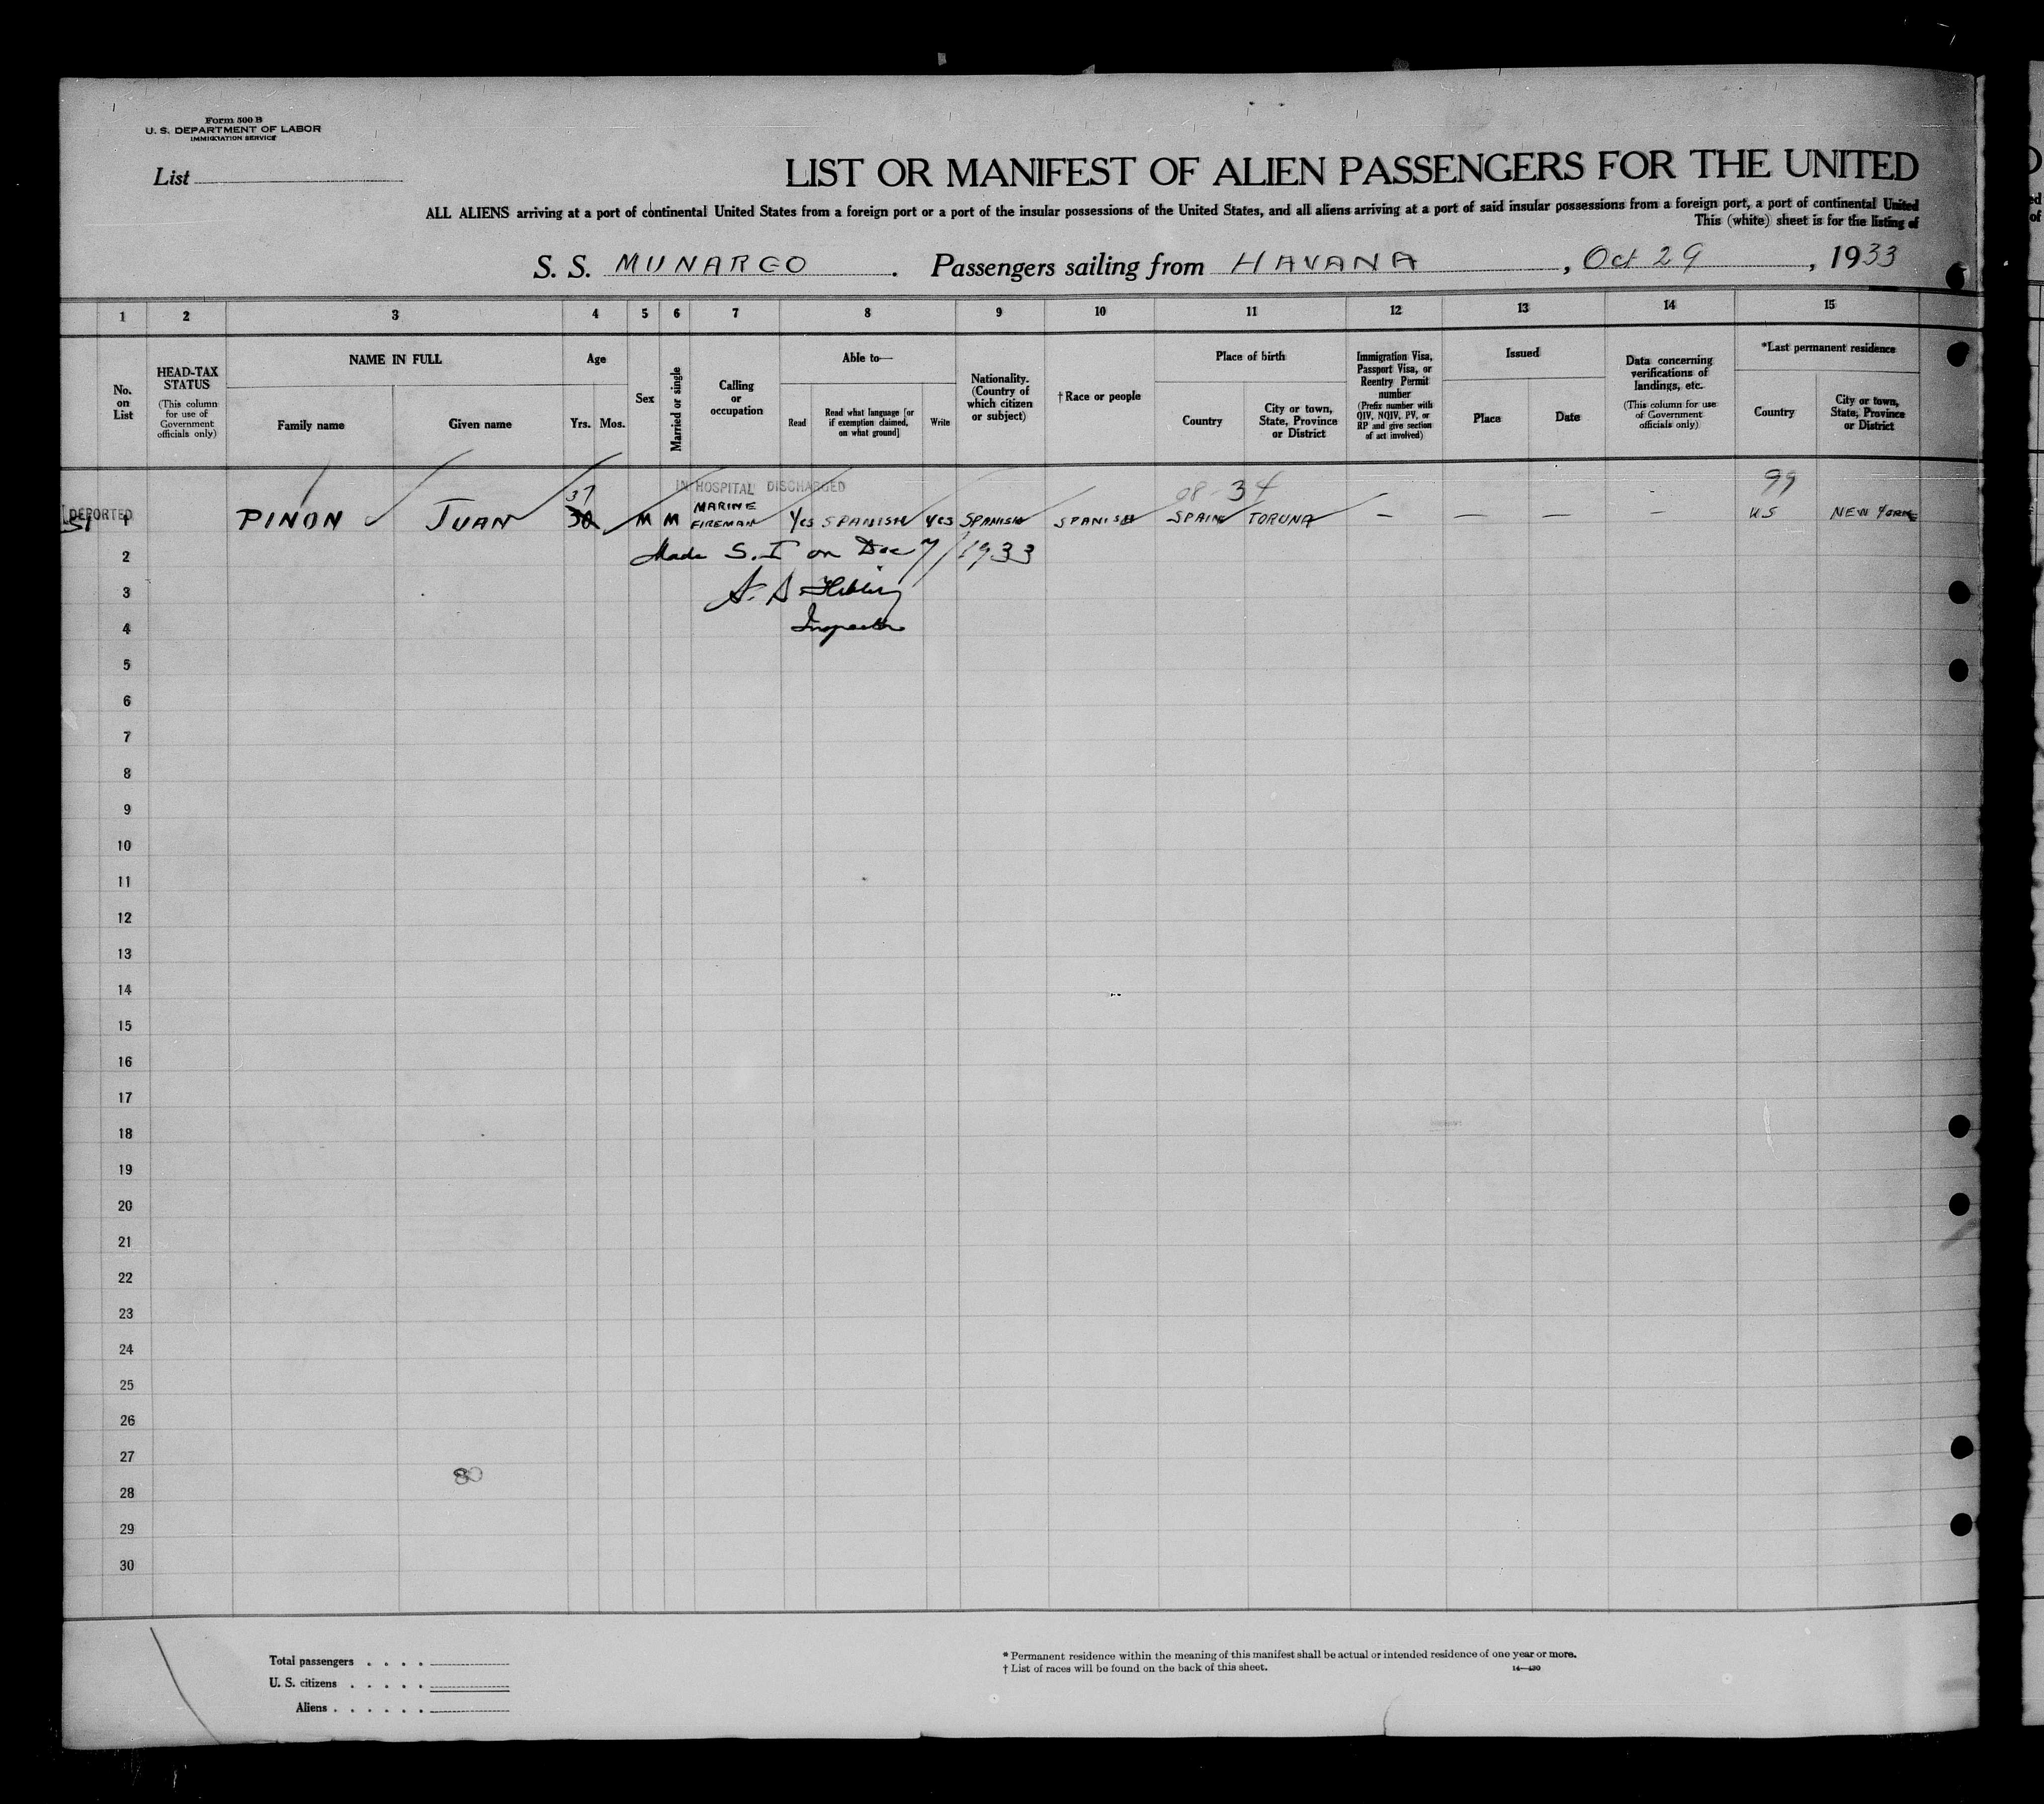 Form 500 B
U. S. DEPARTMENT OF LABOR
IMMIGRATION SERVICE
List
LIST OR MANIFEST OF ALIEN PASSENGERS FOR THE UNITED
ALL ALIENS arriving at a port of continental United States from a foreign port or a port of the insular possessions of the United States, and all aliens arriving at a port of said insular possessions from a foreign port, a port of continental United
This (white) sheet is for the listing of
S. S. MUNARGO . Passengers sailing from HAVANA , Oct 29 , 1933
1 2 3 4 5 6 7 8 9 10 11 12 13 14 15
No. on List
HEAD-TAX STATUS
(This column for use of Government officials only)
NAME IN FULL
Family name
Given name
Age
Yrs. Mos.
Sex
Married or single
Calling or occupation
Able to—
Read
Read what language [or if exemption claimed, on what ground]
Write
Nationality. (Country of which citizen or subject)
†Race or people
Place of birth
Country
City or town, State, Province or District
Immigration Visa, Passport Visa, or Reentry Permit number
(Prefix number with QIV, NQIV, PV, or RP and give section of act involved)
Issued
Place
Date
Data concerning verifications of landings, etc.
(This column for use of Government officials only)
*Last permanent residence
Country
City or town, State, Province or District
37 IN HOSPITAL DISCHARGED 08-34 99
DEPORTED
SI 1 PINON JUAN 30 M M MARINE FIREMAN Yes SPANISH Yes SPANISH SPANISH SPAIN TORUNA — — — — US NEW YORK
2 Made S.I on Dec 7/1933
3
4 Inspector
5
6
7
8
9
10
11
12
13
14
15
16
17
18
19
20
21
22
23
24
25
26
27
80
28
29
30
Total passengers . . . .
U. S. citizens . . . . .
Aliens . . . . . .
* Permanent residence within the meaning of this manifest shall be actual or intended residence of one year or more.
† List of races will be found on the back of this sheet.
14—430